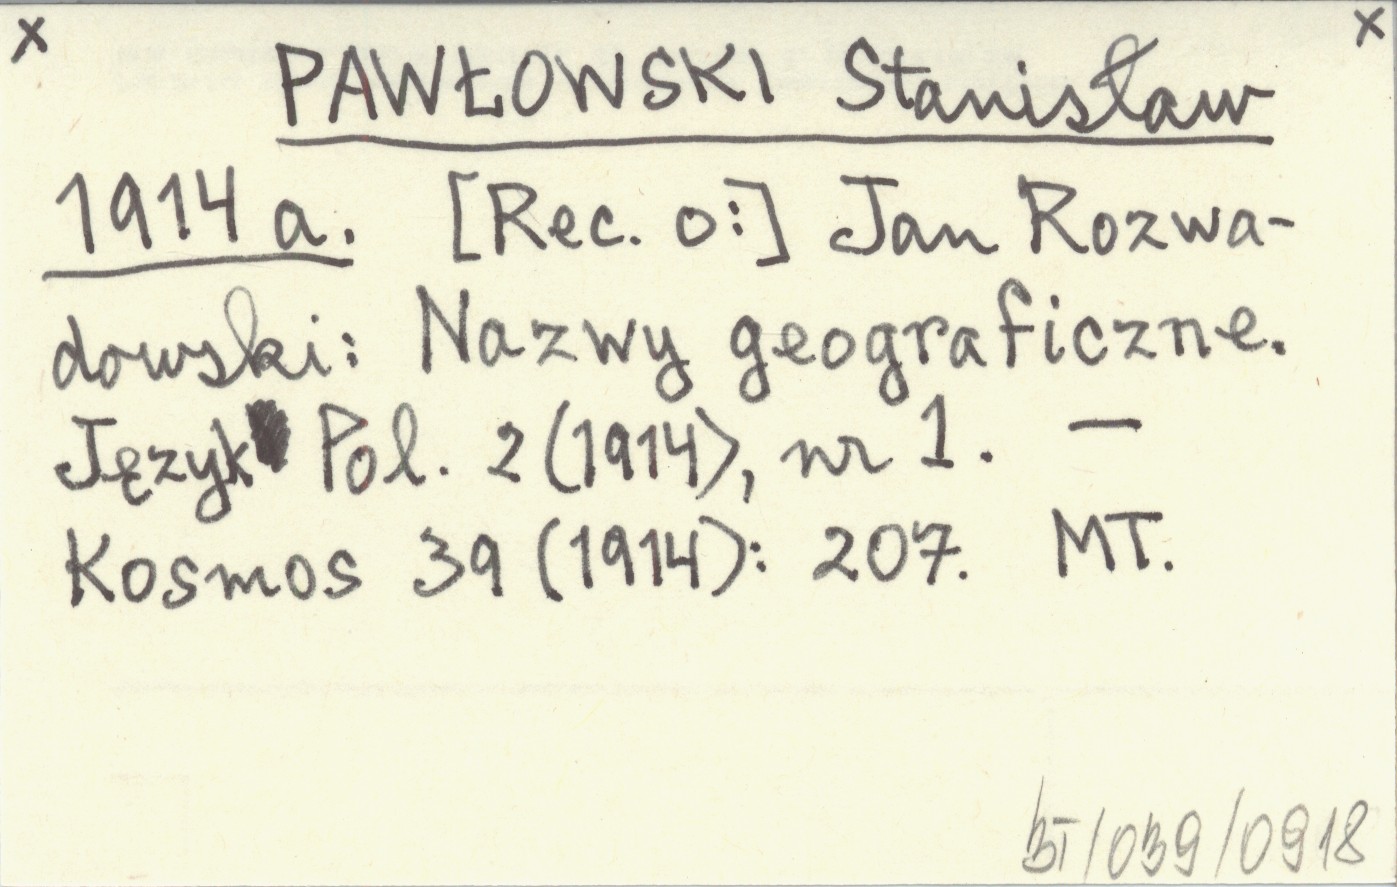 x x
PAWŁOWSKI Stanisław
1914 a. [Rec. o:] Jan Rozwa-
dowski: Nazwy geograficzne.
Język Pol. 2 (1914), nr 1. —
Kosmos 39 (1914): 207. MT.
BI/039/0918